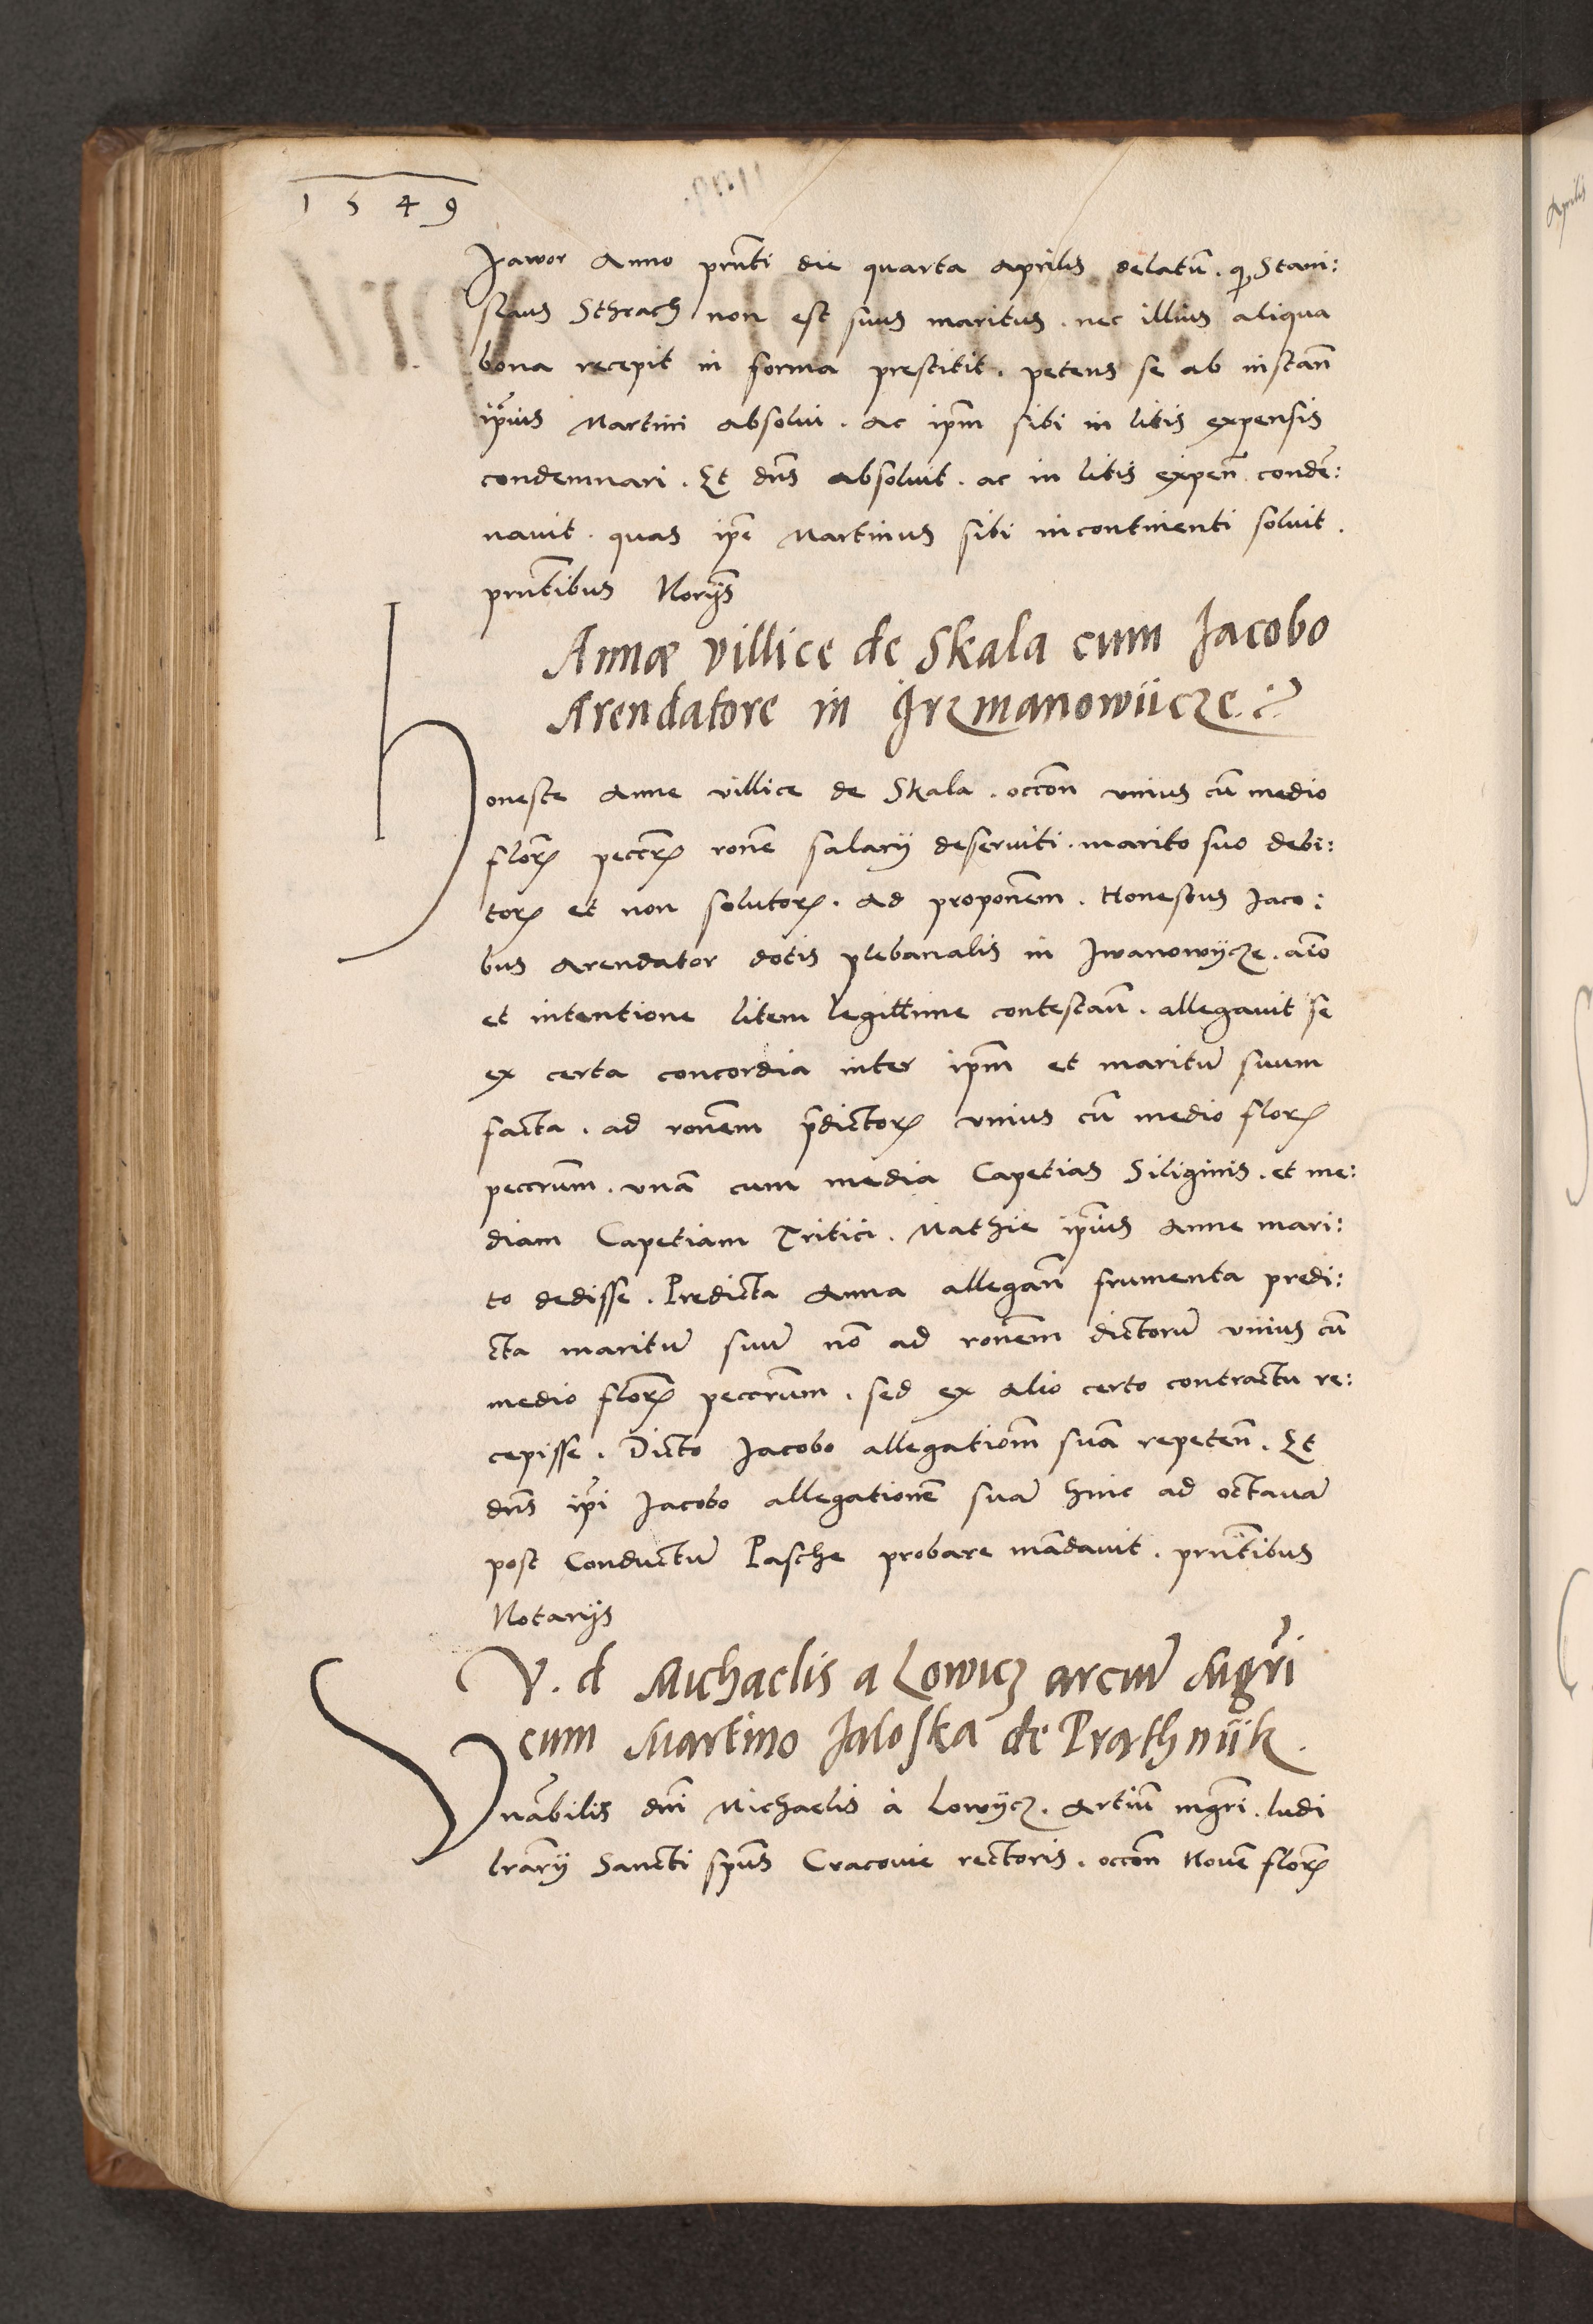 1549
Jawor Anno prnti die quarta Aprilis delatū. q Stani:
slaus Sthrach non est suus maritus. nec illius aliqua
bona recepit in forma prestitit. petens se ab instan̄
ipius Martini absolui. Ac ipm sibi in litis expensis
condemnari. Et dns absoluit. ac in litis expen̄ condē:
nauit. quas ipe Martinus sibi incontinenti soluit.
prntibus Norijs
Annæ villice de Skala cum Jacobo
Arendatore in Jrzmanowiicze
Honeste Anne villice de Skala. occon vnius cū medio
florʒ peccrʒ rone salarij deseruiti. marito suo debi:
torʒ et non solutorʒ. Ad proponem. Honestus Jaco:
bus Arendator dotis plebanalis in Jwanowycze. acio
et intentione litem legittime contestan̄. allegauit se
ex certa concordia inter ipm et maritū suum
facta. ad ronem pdictorʒ vnius cū medio florʒ
peccrum. vnā cum media Capetias Siliginis. et me:
diam Capetiam Tritici. Mathie ipius Anne mari:
to dedisse. Predicta Anna allegan̄ frumenta predi:
cta maritū suū nō ad ronem dictorū vnius cū
medio florʒ peccrum. sed ex alio certo contractu re:
cepisse. Dicto Jacobo allegationm suā repeten̄. Et
dns ipi Jacobo allegationē suā hinc ad octauā
post Conductū Pasche probare mādauit. prntibus
Notarijs
V. d Michaelis a Lowicz arciū Mgri
cum Martino Jaloska de Prathniik.
Vnābilis dni Michaelis à Lowycz. Artiū mgri. ludi
lrārij Sancti spus Cracouie rectoris. occon Nouē florʒ
Aprilis